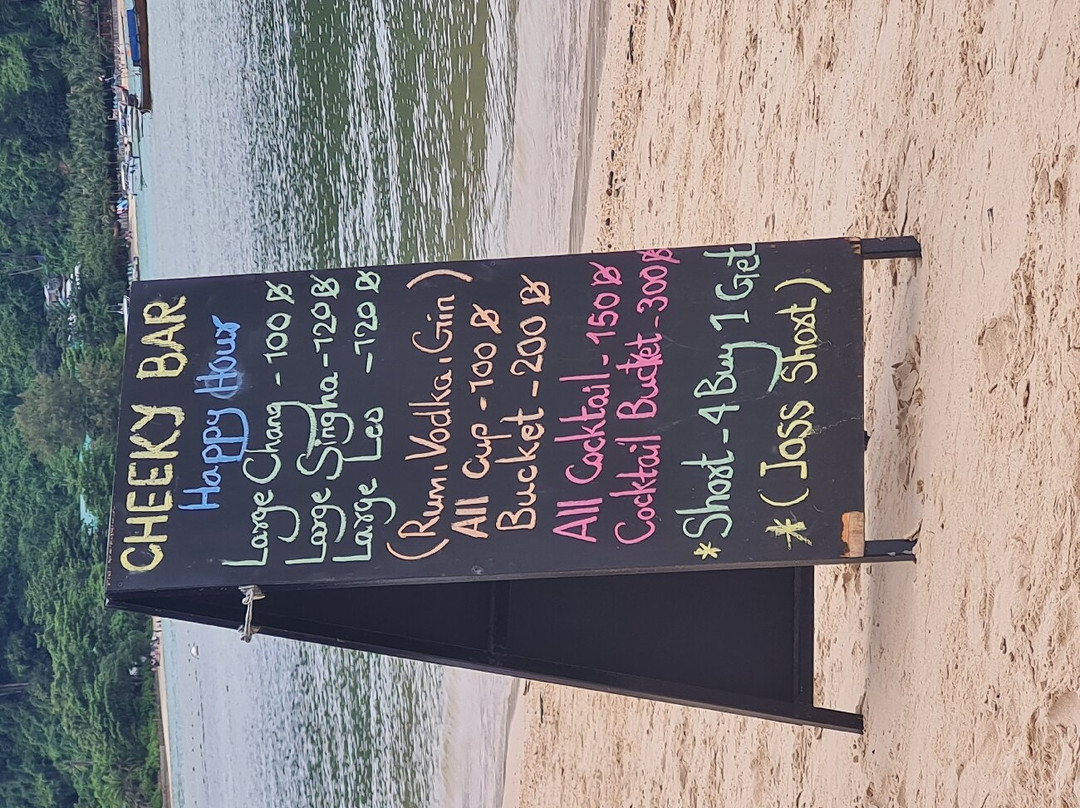 CHEEKY BAR
Happy Hour
Large Chang - 100 ฿
Large Singha - 120 ฿
Large Leo - 120 ฿
(Rum, Vodka, Gin)
All Cup - 100 ฿
Bucket - 200 ฿
All Cocktail - 150 ฿
Cocktail Bucket - 300฿
*Short - 4 Buy 1 Get
* (Joss Short)